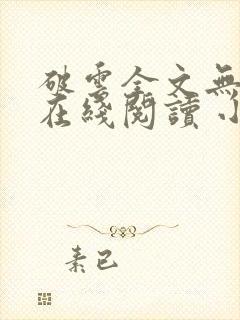 破雲全文無
在綫閱讀 小
素已